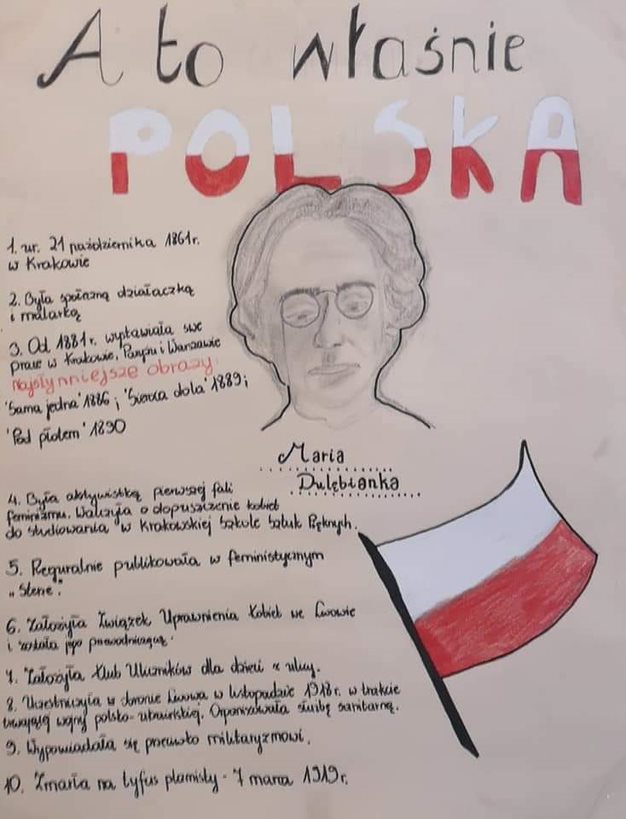 A to właśnie
POLSKA
1. ur. 21 października 1861r.
w Krakowie
2. Była społeczną działaczką
i malarką
3. Od 1881r. wystawiała swe
prace w Krakowie, Paryżu i Warszawie
Najsłynniejsze obrazy
'Sama jedna' 1886; 'Sieroca dola' 1889;
'Pod płotem' 1890
Maria
Dulębianka
4. Była aktywistką pierwszej fali
feminizmu. Walczyła o dopuszczenie kobiet
do studiowania w Krakowskiej Szkole Sztuk Pięknych.
5. Reguralnie publikowała w feministycznym
„Sterze".
6. Założyła Związek Uprawnienia Kobiet we Lwowie
i została jego przewodniczącą.
7. Założyła Klub Uliczników dla dzieci z ulicy.
8. Uczestniczyła w obronie Lwowa w listopadzie 1918r. w trakcie
trwającej wojny polsko-ukraińskiej. Organizowała służbę sanitarną.
9. Wypowiadała się przeciwko militaryzmowi.
10. Zmarła na tyfus plamisty - 7 marca 1919r.